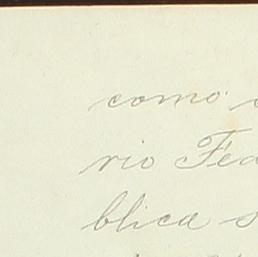 como
rio Fed
blica s